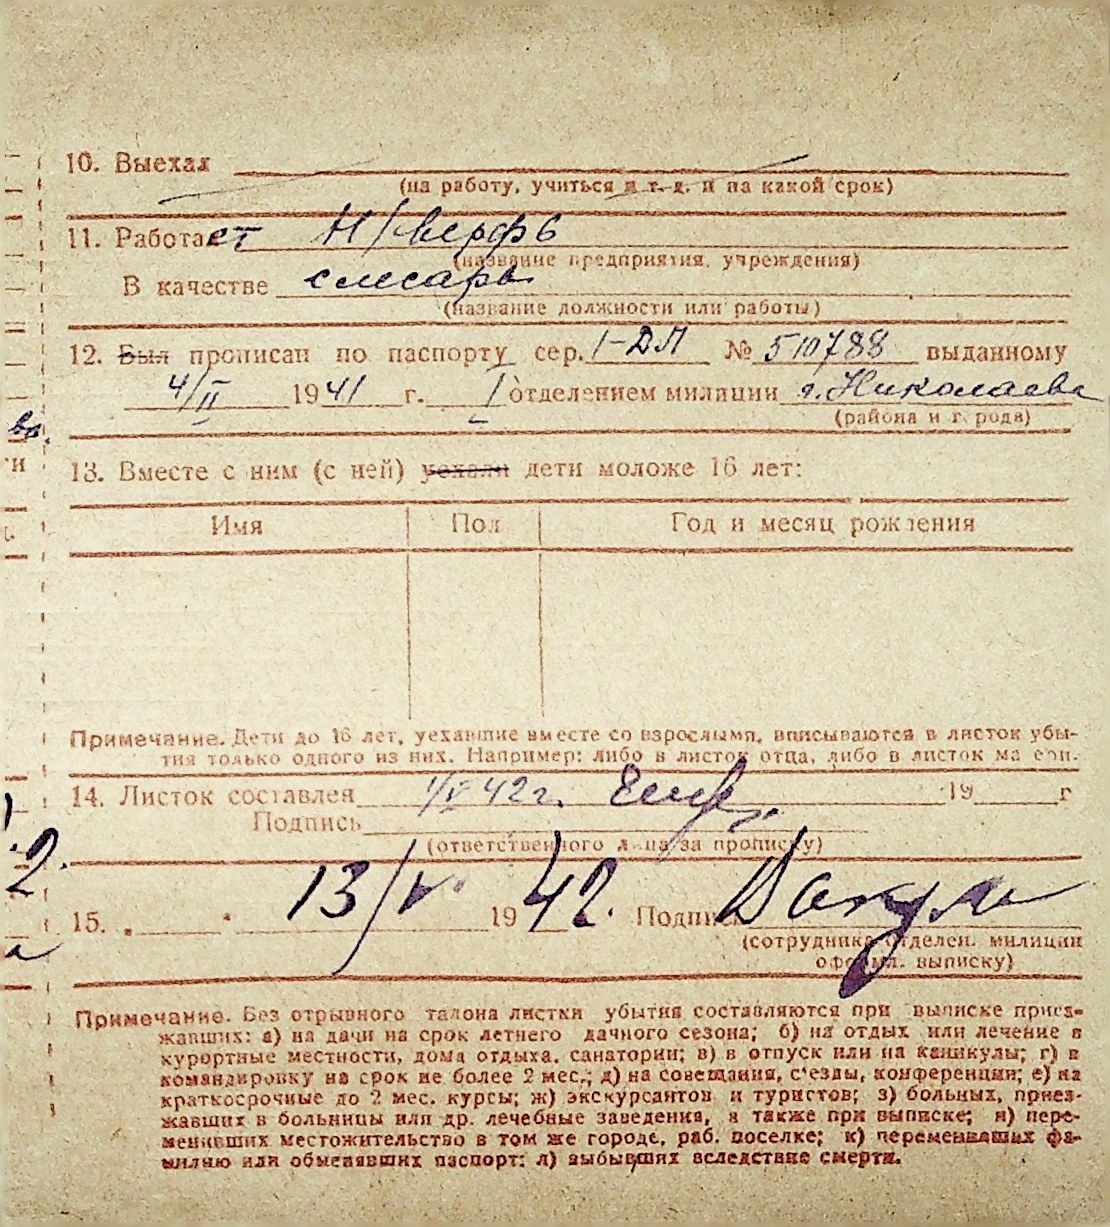 10. Выехал
(на работу, учиться и т. д. и на какой срок)
11. Работает Н/верфь
(название предприятия, учреждения)
В качестве слесарь
(название должности или работы)
12. Был прописан по паспорту сер. I-ДЛ № 510788 выданному
4/II 1941 г. I отделением милиции г. Николаева
(района и города)
13. Вместе с ним (с ней) уехали дети моложе 16 лет:
Имя Пол Год и месяц рождения
Примечание. Дети до 16 лет, уехавшие вместе со взрослыми, вписываются в листок убы-
тия только одного из них. Например: либо в листок отца, либо в листок матери.
14. Листок составлен 1/V 42 г. 19 г
Подпись
(ответственного лица за прописку)
15. 13/V 1942. Подпись
(сотрудника отделен. милиции
оформл. выписку)
Примечание. Без отрывного талона листки убытия составляются при выписке приез-
жавших: а) на дачи на срок летнего дачного сезона; б) на отдых или лечение в
курортные местности, дома отдыха, санатории; в) в отпуск или на каникулы; г) в
командировку на срок не более 2 мес.; д) на совещания, с'езды, конференции; е) на
краткосрочные до 2 мес. курсы; ж) экскурсантов и туристов; з) больных, приез-
жавших в больницы или др. лечебные заведения, а также при выписке; и) пере-
менивших местожительство в том же городе, раб. поселке; к) переменивших фа-
милию или обменявших паспорт; л) выбывших вследствие смерти.